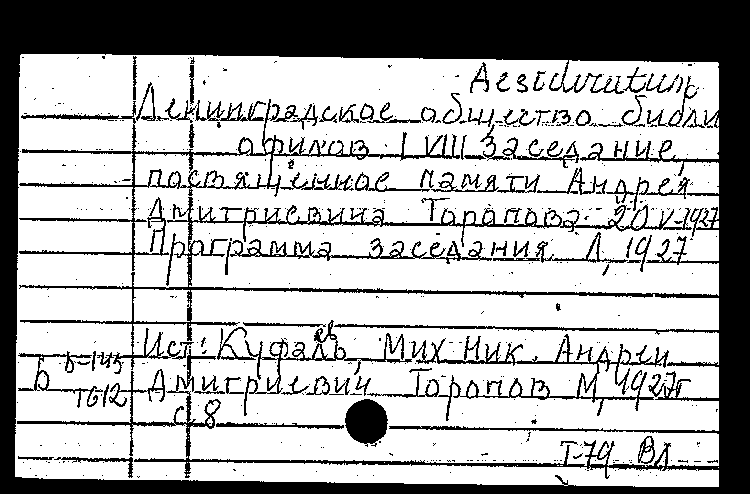 Desideratum
Ленинградское общество библи
офилов. LVIII заседание,
посвящённое памяти Андрея
Дмитриевича Торопова 20 V-1927
Программа заседания Л, 1927
Ист: Куфаев, Мих Ник. Андреи
Дмитриевич Торопов М, 1927г
с. 8
Б Б-145
TG12
Т-79 Вл